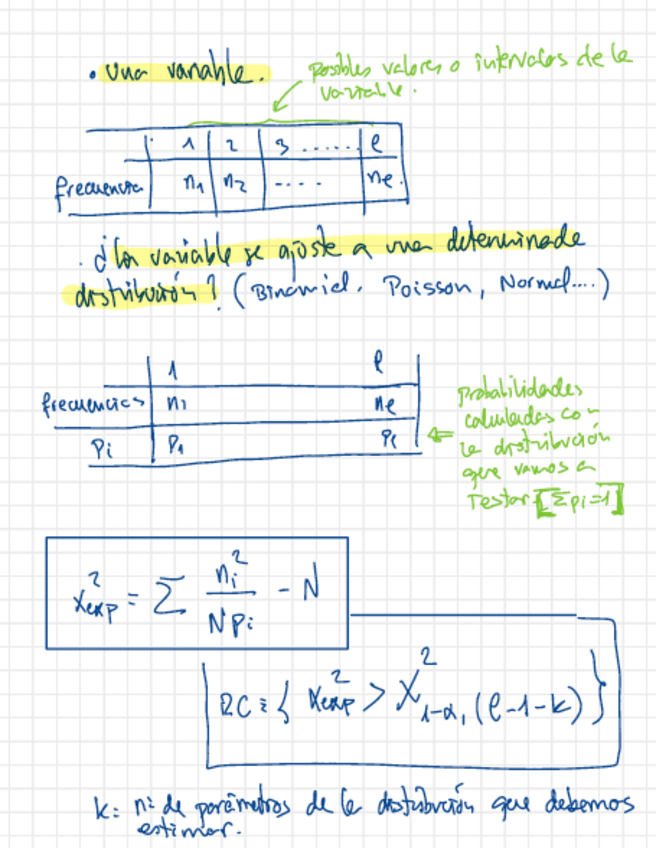 • Una variable.
posibles valores o intervalos de la
variable.
1 2 3 ...... l
frecuencia n₁ n₂ .... nₑ.
. ¿La variable se ajusta a una determinada
distribución? (Binomial, Poisson, Normal....)
1 l
frecuencias n₁ nₑ
Pi P₁ Pₗ
Probabilidades
calculadas con
la distribución
que vamos a
Testar [Σpi=1]
χ²exp = Σ nᵢ² / Npᵢ - N
RC = { χ²exp > χ²₁₋α, (l-1-k) }
k: nº de parámetros de la distribución que debemos
estimar.